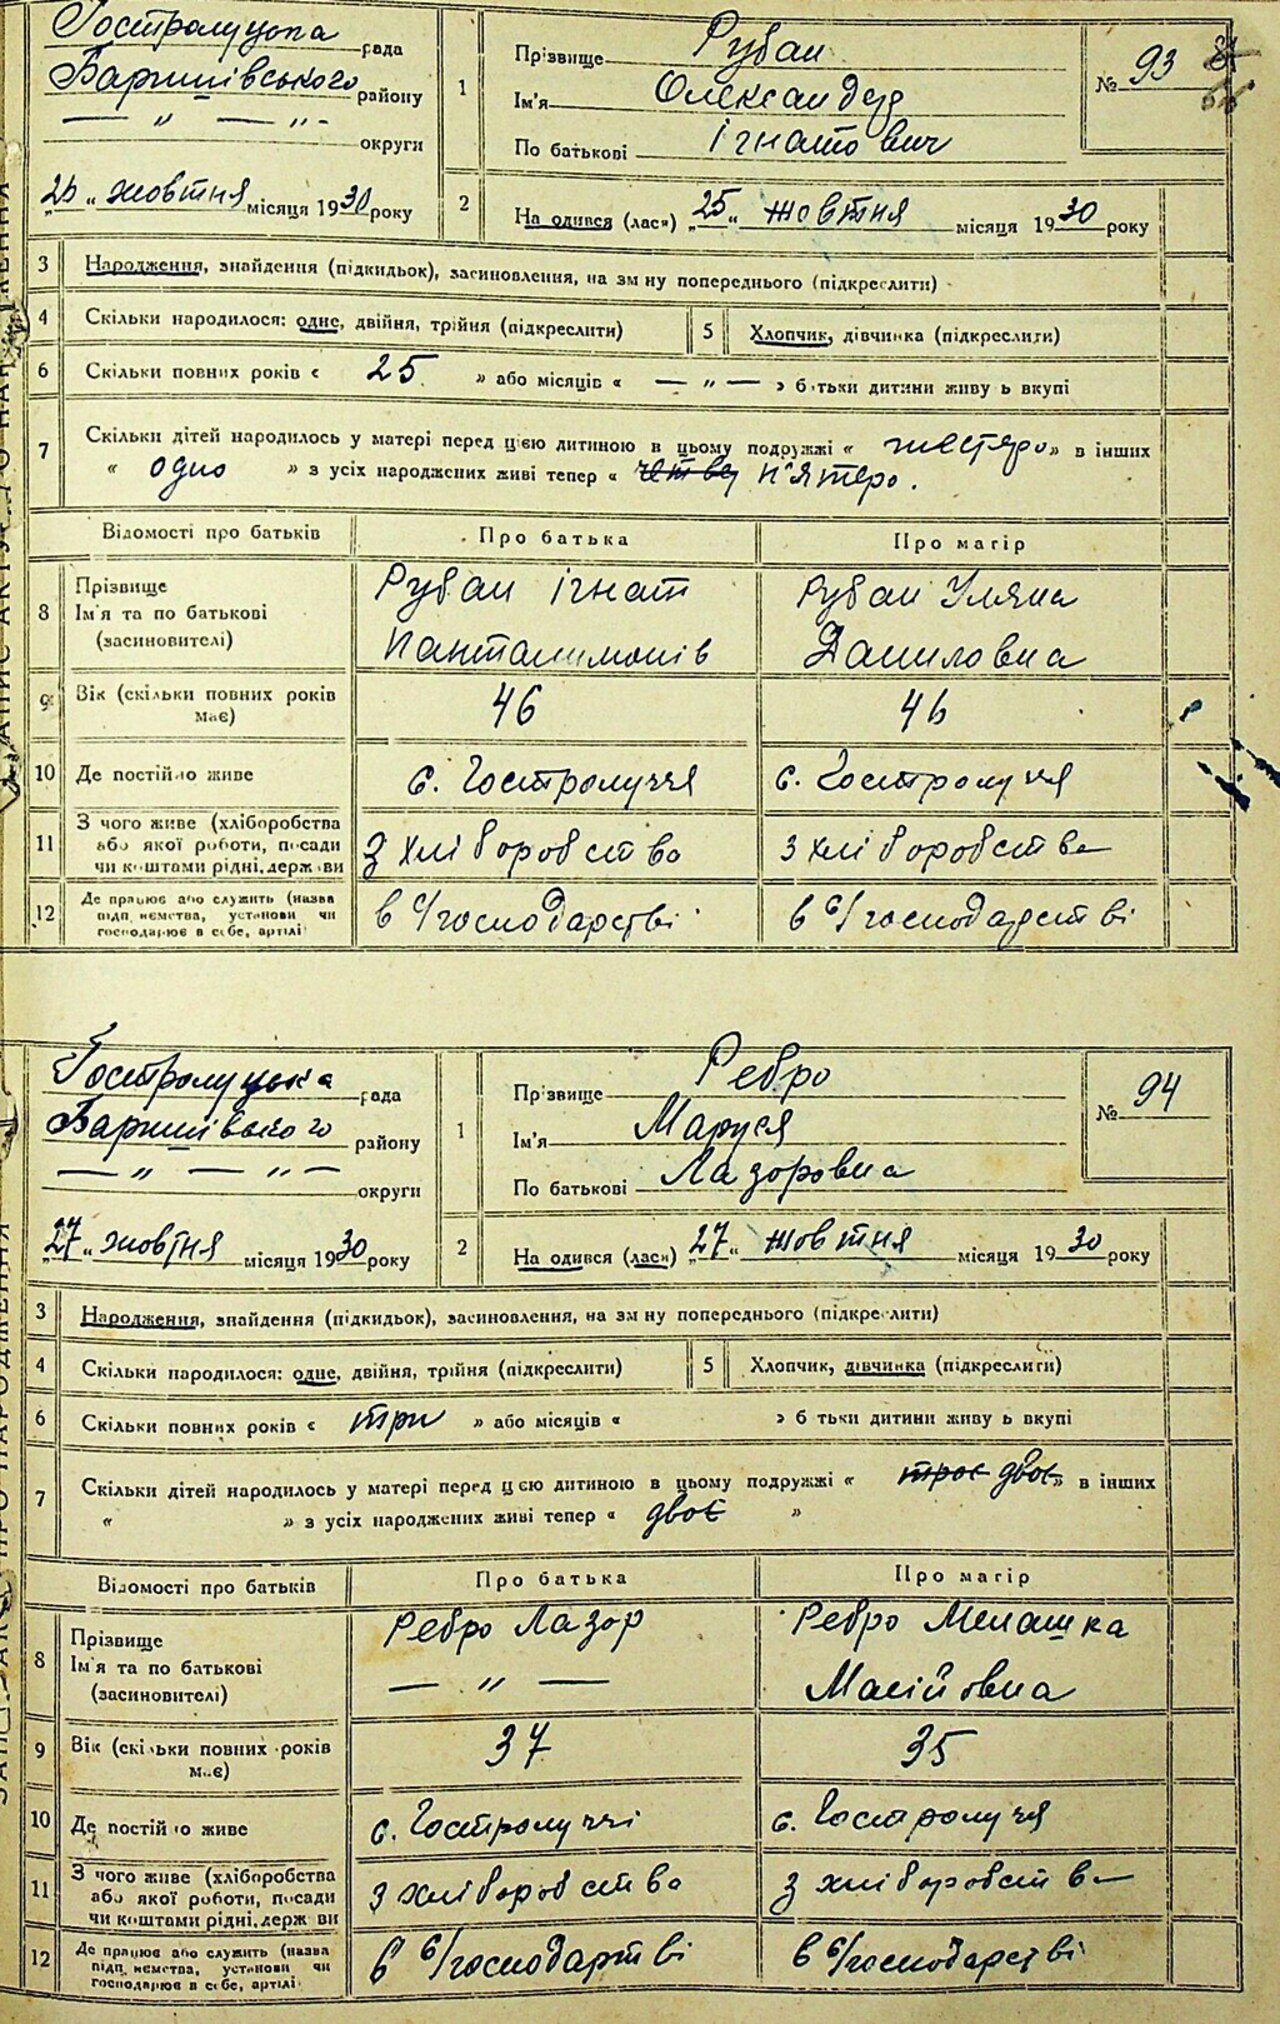 Гостролуцька рада
Баришівського району
— „ — „ - округи
„26“ жовтня місяця 1930 року
1
Прізвище Рубан
Ім'я Олександр
По батькові Ігнатович
№ 93
2
Народився (лась) „25“ жовтня місяця 1930 року
3 Народження, знайдення (підкидьок), засиновлення, на зміну попереднього (підкреслити)
4 Скільки народилося: одне, двійня, трійня (підкреслити)
5 Хлопчик, дівчинка (підкреслити)
6 Скільки повних років « 25 » або місяців « — „ — » батьки дитини живуть вкупі
7 Скільки дітей народилось у матері перед цією дитиною в цьому подружжі « шестеро » в інших
« одно » з усіх народжених живі тепер « четвер п'ятеро.
Відомості про батьків Про батька Про матір
8 Прізвище
Ім'я та по батькові
(засиновителі)
Рубан Ігнат
Панталимонів
Рубан Уляна
Даниловна
9 Вік (скільки повних років
має)
46
46
10 Де постійно живе с. Гостролуччя с. Гостролуччя
11 З чого живе (хліборобства
або якої роботи, посади
чи коштами рідні, держави
З хліборобства
з хліборобства
12 Де працює або служить (назва
підприємства, установи чи
господарює в себе, артілі
в с/господарстві
в с/господарстві
Гостролуцька рада
Баришівського району
— „ — „ — округи
„27“ жовтня місяця 1930 року
1
Прізвище Ребро
Ім'я Маруся
По батькові Лазоровна
№ 94
2
Народився (лась) „27“ жовтня місяця 1930 року
3 Народження, знайдення (підкидьок), засиновлення, на зміну попереднього (підкреслити)
4 Скільки народилося: одне, двійня, трійня (підкреслити)
5 Хлопчик, дівчинка (підкреслити)
6 Скільки повних років « три » або місяців « » батьки дитини живуть вкупі
7 Скільки дітей народилось у матері перед цією дитиною в цьому подружжі « троє двоє » в інших
« » з усіх народжених живі тепер « двоє »
Відомості про батьків Про батька Про матір
8 Прізвище
Ім'я та по батькові
(засиновителі)
Ребро Лазор
— „ —
Ребро Мелашка
Масійовна
9 Вік (скільки повних років
має)
37
35
10 Де постійно живе с. Гостролуччі с. Гостролуччя
11 З чого живе (хліборобства
або якої роботи, посади
чи коштами рідні, держави
з хліборобства
з хліборобства
12 Де працює або служить (назва
підприємства, установи чи
господарює в себе, артілі
в с/господартві
в с/господарстві